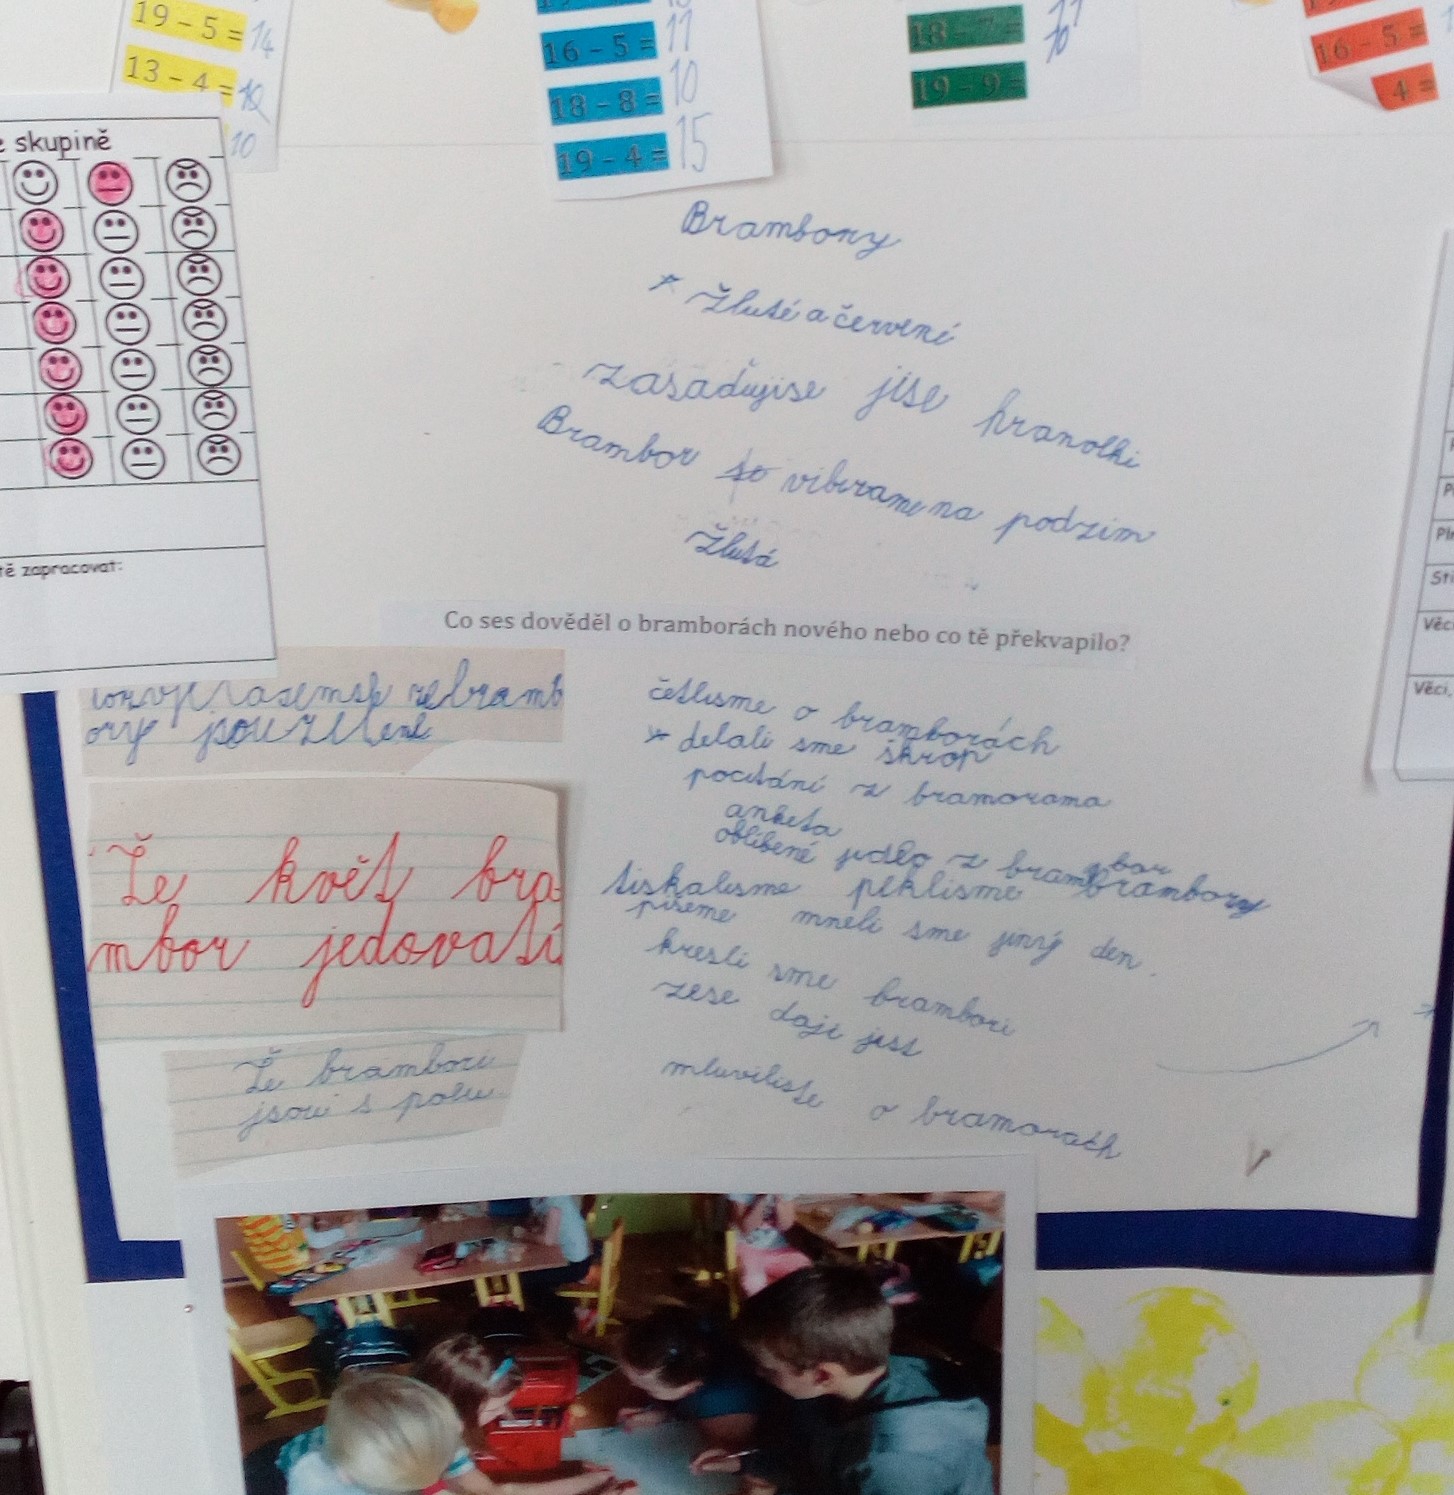 19 - 5 = 14
13 - 4 =
10
16 - 5 = 11
18 - 8 = 10
19 - 4 = 15
18 - 7 =
19 - 9 =
16 - 5 =
4 =
skupině
zapracovat:
Brambory
Žluté a červené
zasaďujise jise hranolki
Brambor vibirame na podzim
Žlutá
Co ses dověděl o bramborách nového nebo co tě překvapilo?
zebramb
ory jsou zelené
Že květ bra
mbor jedovatí
Že brambori
jsou s polu
četlisme o bramborách
delali sme škrop
pocitání z bramorama
anketa
oblíbené jidlo z brambor
tiskalisme peklisme brambory
píšeme mneli sme jinný den.
kresli sme brambori
zese daji jest
mluviliste o bramorach
Věci
Věci,